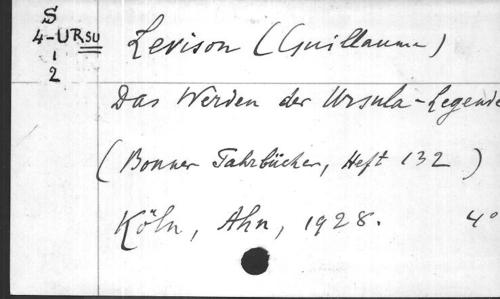 S
4-URSU
1
2
Levison (Guillaume)
Das Werden der Ursula-Legende
(Bonner Jahrbücher, Heft 132)
Köln, Ahn, 1928. 4°